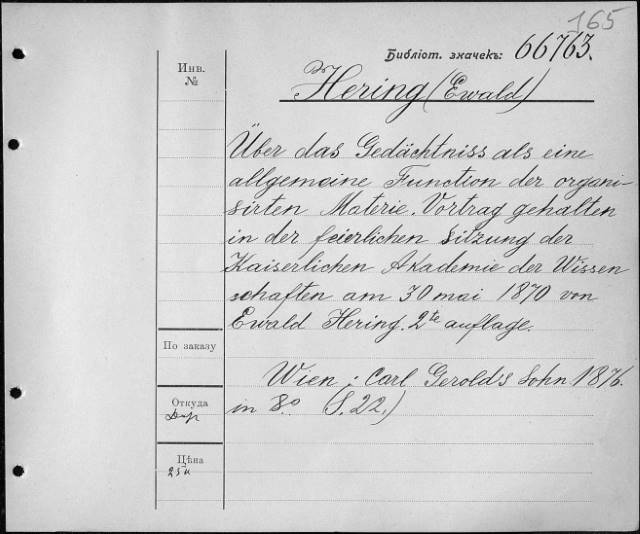 165
Библіот. значекъ: 66763.
Инв.
№
Hering (Ewald)
Über das Gedächtniss als eine
allgemeine Function der organi-
sirten Materie. Vortrag gehalten
in der feierlichen Sitzung der
Kaiserlichen Akademie der Wissen
schaften am 30 mai 1870 von
Ewald Hering. 2te auflage.
По заказу
Wien: Carl Gerold's Sohn 1876.
in 8.o (S. 22.)
Откуда
Дар
Цѣна